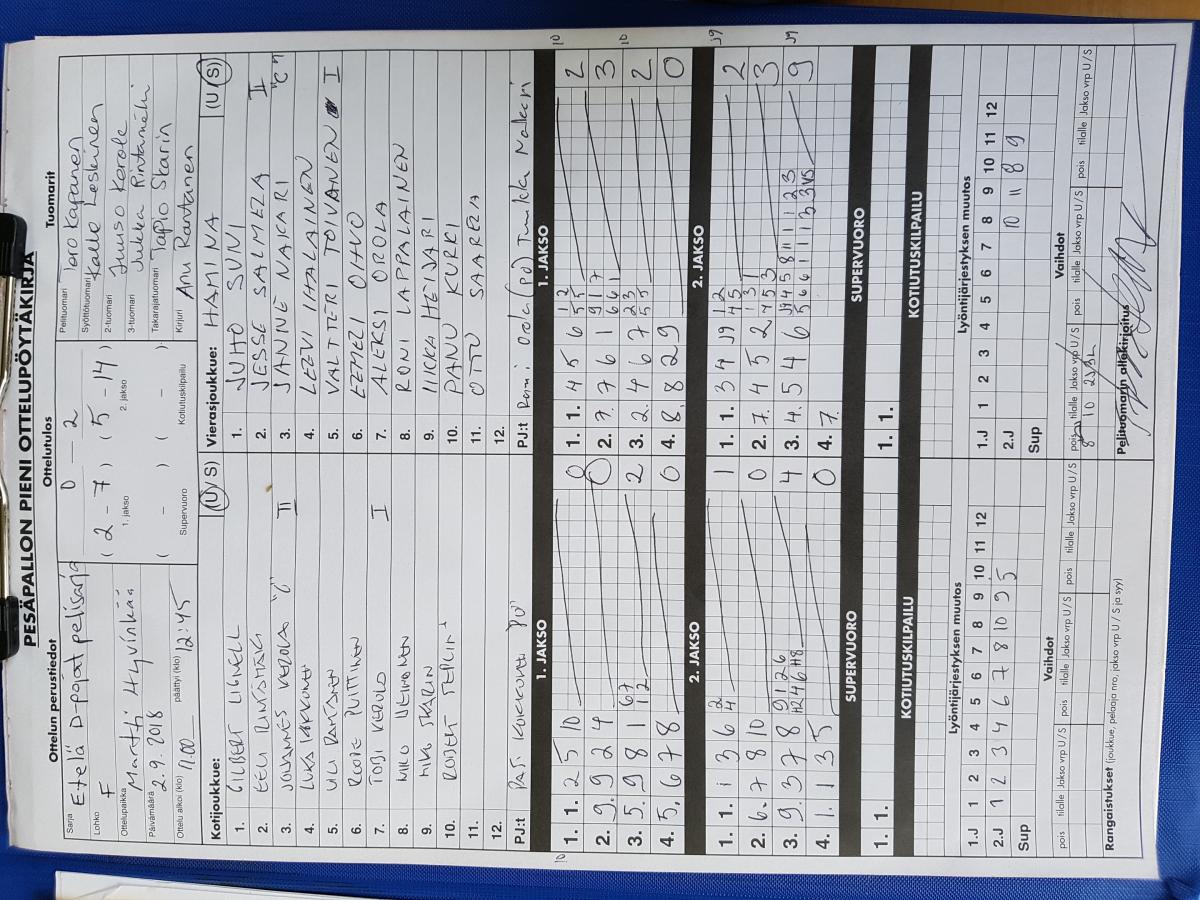 PESÄPALLON PIENI OTTELUPÖYTÄKIRJA
Ottelun perustiedot
Sarja Etelä D-pojat pelisarja
Lohko F
Ottelupaikka Martti Hyvinkää
Päivämäärä 2.9.2018
Ottelu alkoi (klo) 11.00 päättyi (klo) 12:45
Ottelutulos
0 – 2
( 2 – 7 ) ( 5 – 14 )
1. jakso 2. jakso
( – ) ( – )
Supervuoro Kotiutuskilpailu
Tuomarit
Pelituomari Kapanen
Syöttötuomari Kalle Leskinen
2-tuomari Juuso Kerola
3-tuomari Jukka Rintamäki
Takarajatuomari Tapio Skarin
Kirjuri Anu Rantanen
Kotijoukkue: (U / S)
1. GILBERT LIGNELL
2. EELI RINTAMÄKI
3. JOHANNES KEROLA "C" II
4. LUKA KOKKONEN
5. ULI RANTANEN
6. ROOPE PUITTINEN
7. TOBI KEROLO I
8. NIKO
9. NIKI SKARIN
10. ROBERT
11.
12.
PJ:t PASI KOKKONEN
Vierasjoukkue: HAMINA (U / S)
1. JUHO SUVI
2. JESSE SALMELA II
3. JANNE NAKARI "C"
4. LEEVI IHALAINEN
5. VALTTERI TOIVANEN I
6. EEMELI OIHVO
7. ALEKSI OROLA
8. RONI LAPPALAINEN
9. MIKA HEIJARI
10. PANU KURKI
11. OTTO SAARELA
12.
PJ:t Rami Orola (pj) Tuukka
1. JAKSO
1. 1. 2 5 10 0
2. 9. 9 2 4 0
3. 5. 9 8 1 67 12 2
4. 5. 6 7 8 0
1. JAKSO
1. 1. 4 5 6 12 55 2
2. 7. 7 6 1 917 661 3
3. 2. 4 6 7 23 55 2
4. 8. 8 2 9 0
2. JAKSO
1. 1. 1 3 6 2 4 1
2. 6. 7 8 10 0
3. 9. 3 7 8 9126 4
4. 1. 1 3 5 0
2. JAKSO
1. 1. 3 4 J9 12 45 2
2. 7. 4 5 2 131 453 3
3. 4. 5 4 6 9
4. 7.
SUPERVUORO
1. 1.
SUPERVUORO
1. 1.
KOTIUTUSKILPAILU
KOTIUTUSKILPAILU
Lyöntijärjestyksen muutos
1.J 1 2 3 4 5 6 7 8 9 10 11 12
2.J 1 2 3 4 6 7 8 10 9 5
Sup
Lyöntijärjestyksen muutos
1.J 1 2 3 4 5 6 7 8 9 10 11 12
2.J 10 11 8 9
Sup
Vaihdot
pois tilalle Jakso vrp U / S pois tilalle Jakso vrp U / S pois tilalle Jakso vrp U / S
Vaihdot
pois tilalle Jakso vrp U / S pois tilalle Jakso vrp U / S pois tilalle Jakso vrp U / S
8 10
Rangaistukset (joukkue, pelaaja nro, jakso vrp U / S ja syy)
Pelituomarin allekirjoitus